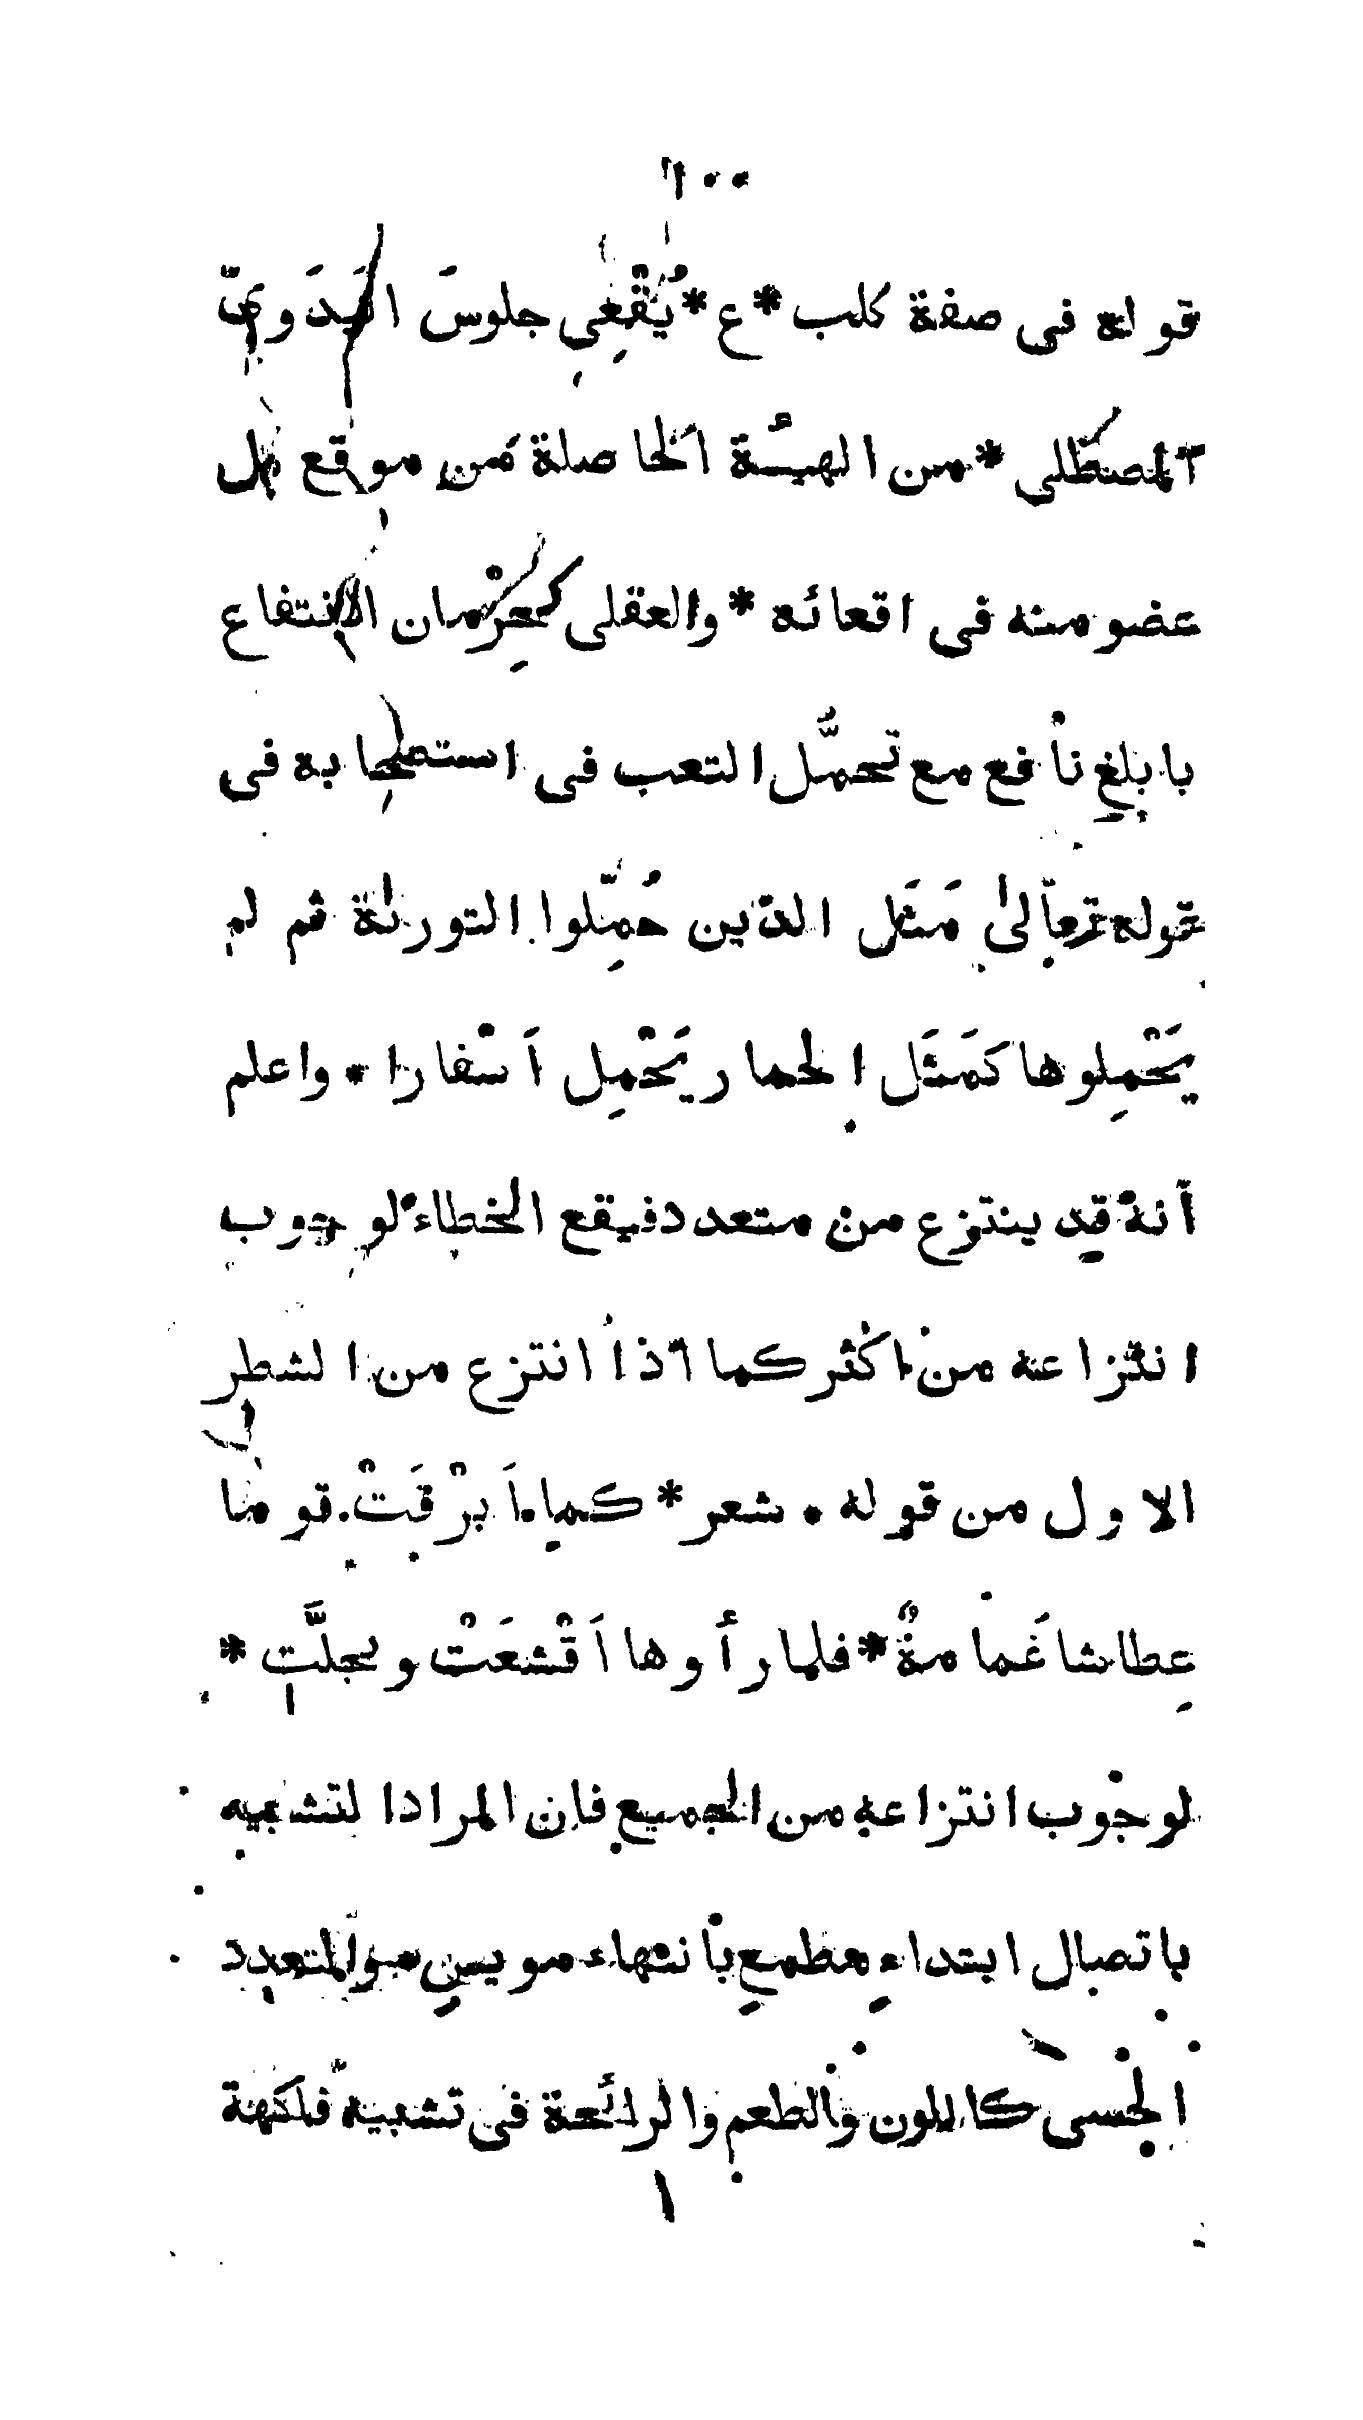 ٦٠٠
قوله فى صفة كلب * ع * يُقْعِي جلوسَ البَدَوِيّ
المصطلى * من الهيئة الحاصلة من موقع كل
عضو منه فى اقعائه * والعقلى كحِرْمان الانتفاع
بابلغِ نافع مع تحمُّل التعب فى استصحِابه فى
قوله تعالى مَثَل الذين حُمِّلوا التورىٰة ثم لم
يَحْمِلوها كمَثَل الحمار يَحْمِل اَسْفارا * واعلم
أنه قد ينتزع من متعدد فيقع الخطاء لوجوب
انتزاعه من اكثر كما اذا انتزع من الشطر
الاول من قوله * شعر * كما اَبرْقَتْ قوما
عِطاشا غَمامةٌ * فلما رأوها اَقْشعَتْ وتجلَّتِ *
لوجوب انتزاعه من الجميع فان المراد التشبيه
باتصال ابتداءٍ مطمعٍ بانتهاء مويسٍ والمتعدد
الحسى كاللون والطعم والرائحة فى تشبيه فاكهة